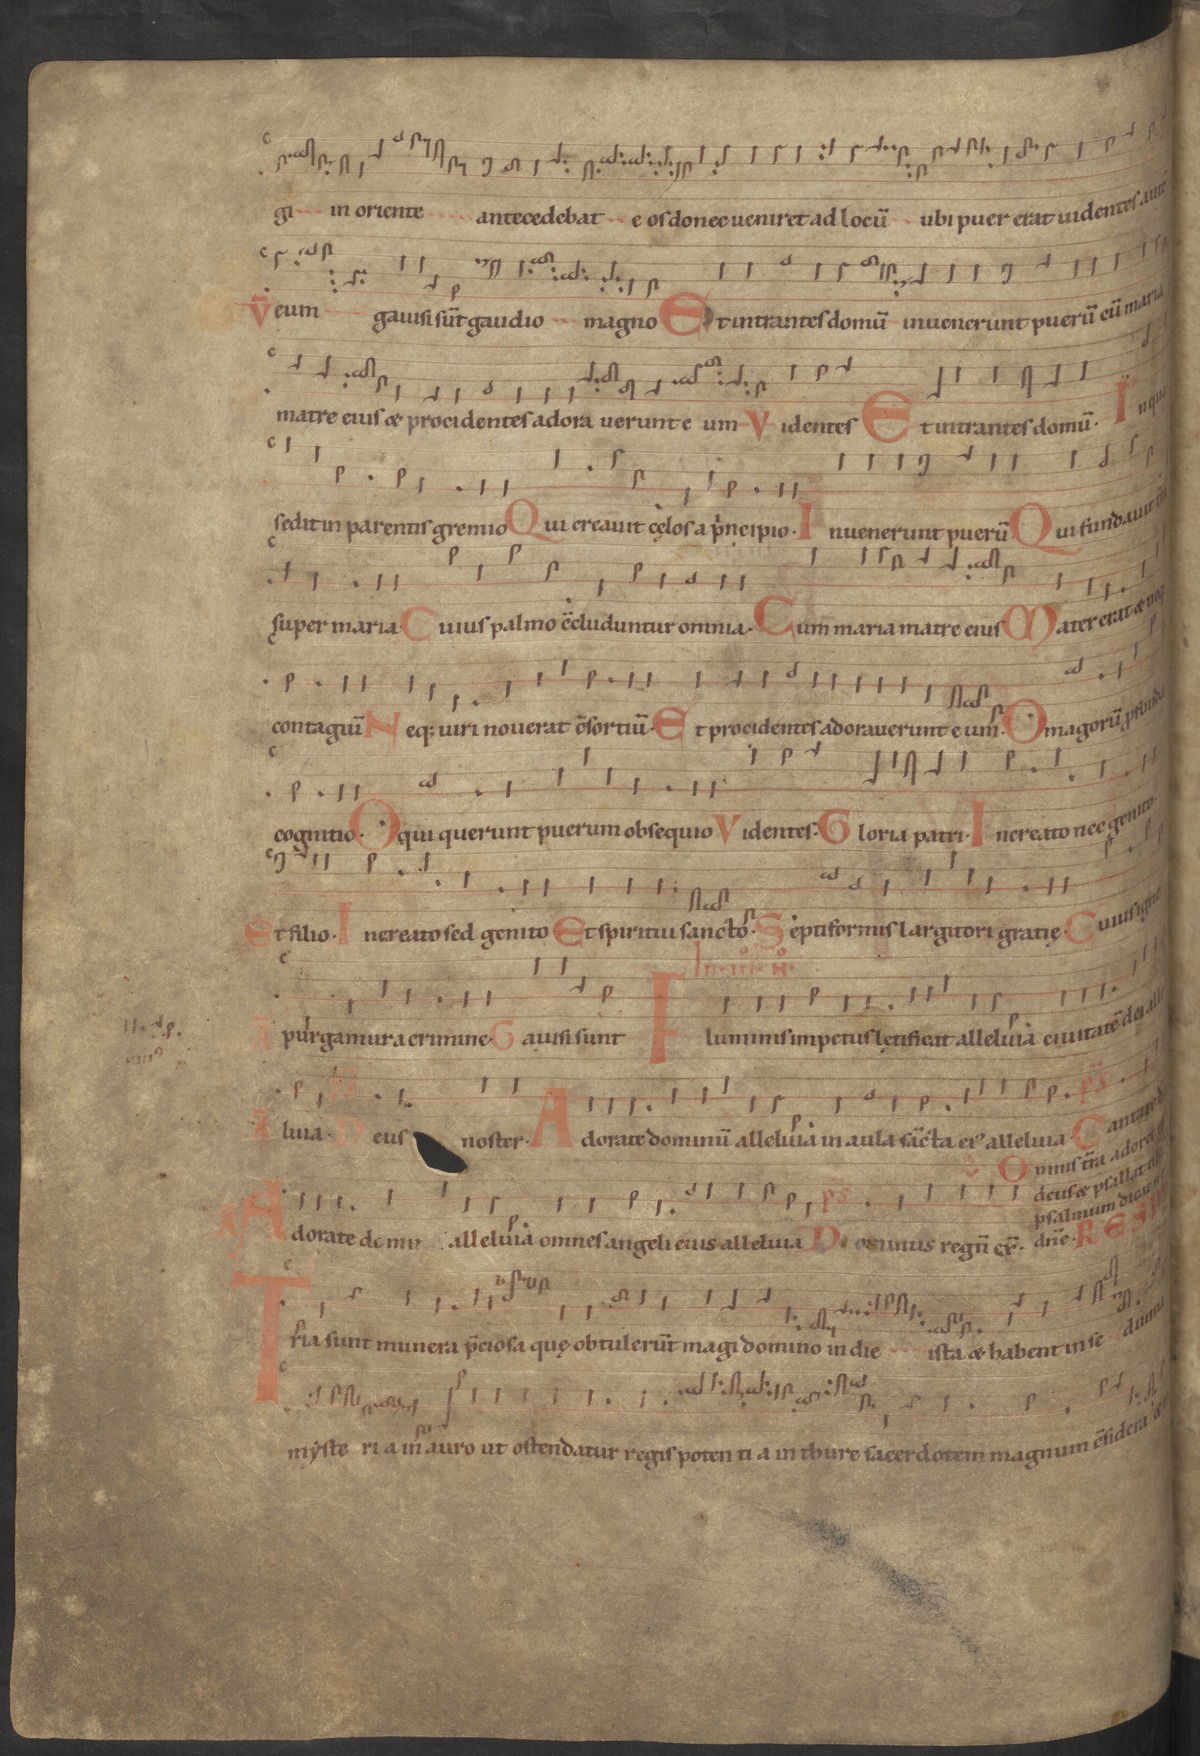 gi in oriente antecedebat e os donec ueniret ad locū ubi puer erat uidentes autē
V̄ eum gauisi sūt gaudio magno Et intrantes domū inuenerunt puerū cū maria
matre eius & procidentes adora uerunt e um Videntes Et intrantes domū· In quo
sedit in parentis gremio Qui creauit cęlos a pͥncipio· Inuenerunt puerū Qui fundauit
super maria· Cuius palmo c̄cluduntur omnia· Cum maria matre eius Mater erat & neq
contagiū Neq; uiri nouerat c̄sortiū· Et procidentes adorauerunt e um· O magorū pfunda
cognitio· O qui querunt puerum obsequio Videntes· Gloria patri· Increato nec genito
Et filio· Increato sed genito Et spiritui sancto· Septiformis largitori gratię· Cuius igne
purgamur a crimine· Gauisi sunt In· iii· N̄· Fluminis impetus lętificat alleluia ciuitatē dei alle
luia· Ps̄ Deus noster· Adorate dominū alleluia in aula sācta ei alleluia· Ps̄ Cantate
V̄ Omnis t̄ra adoret
deus & psallat
psalmum dicat
Adorate domi alleluia omnes angeli eius alleluia Ps̄ Dominus regn̄ ex̄· dn̄e· RESP
Tria sunt munera p̄ciosa quę obtulerūt magi domino in die ista & habent in se diuina
myste ri a in auro ut ostendatur regis poten ti a in thure sacerdotem magnum c̄sidera